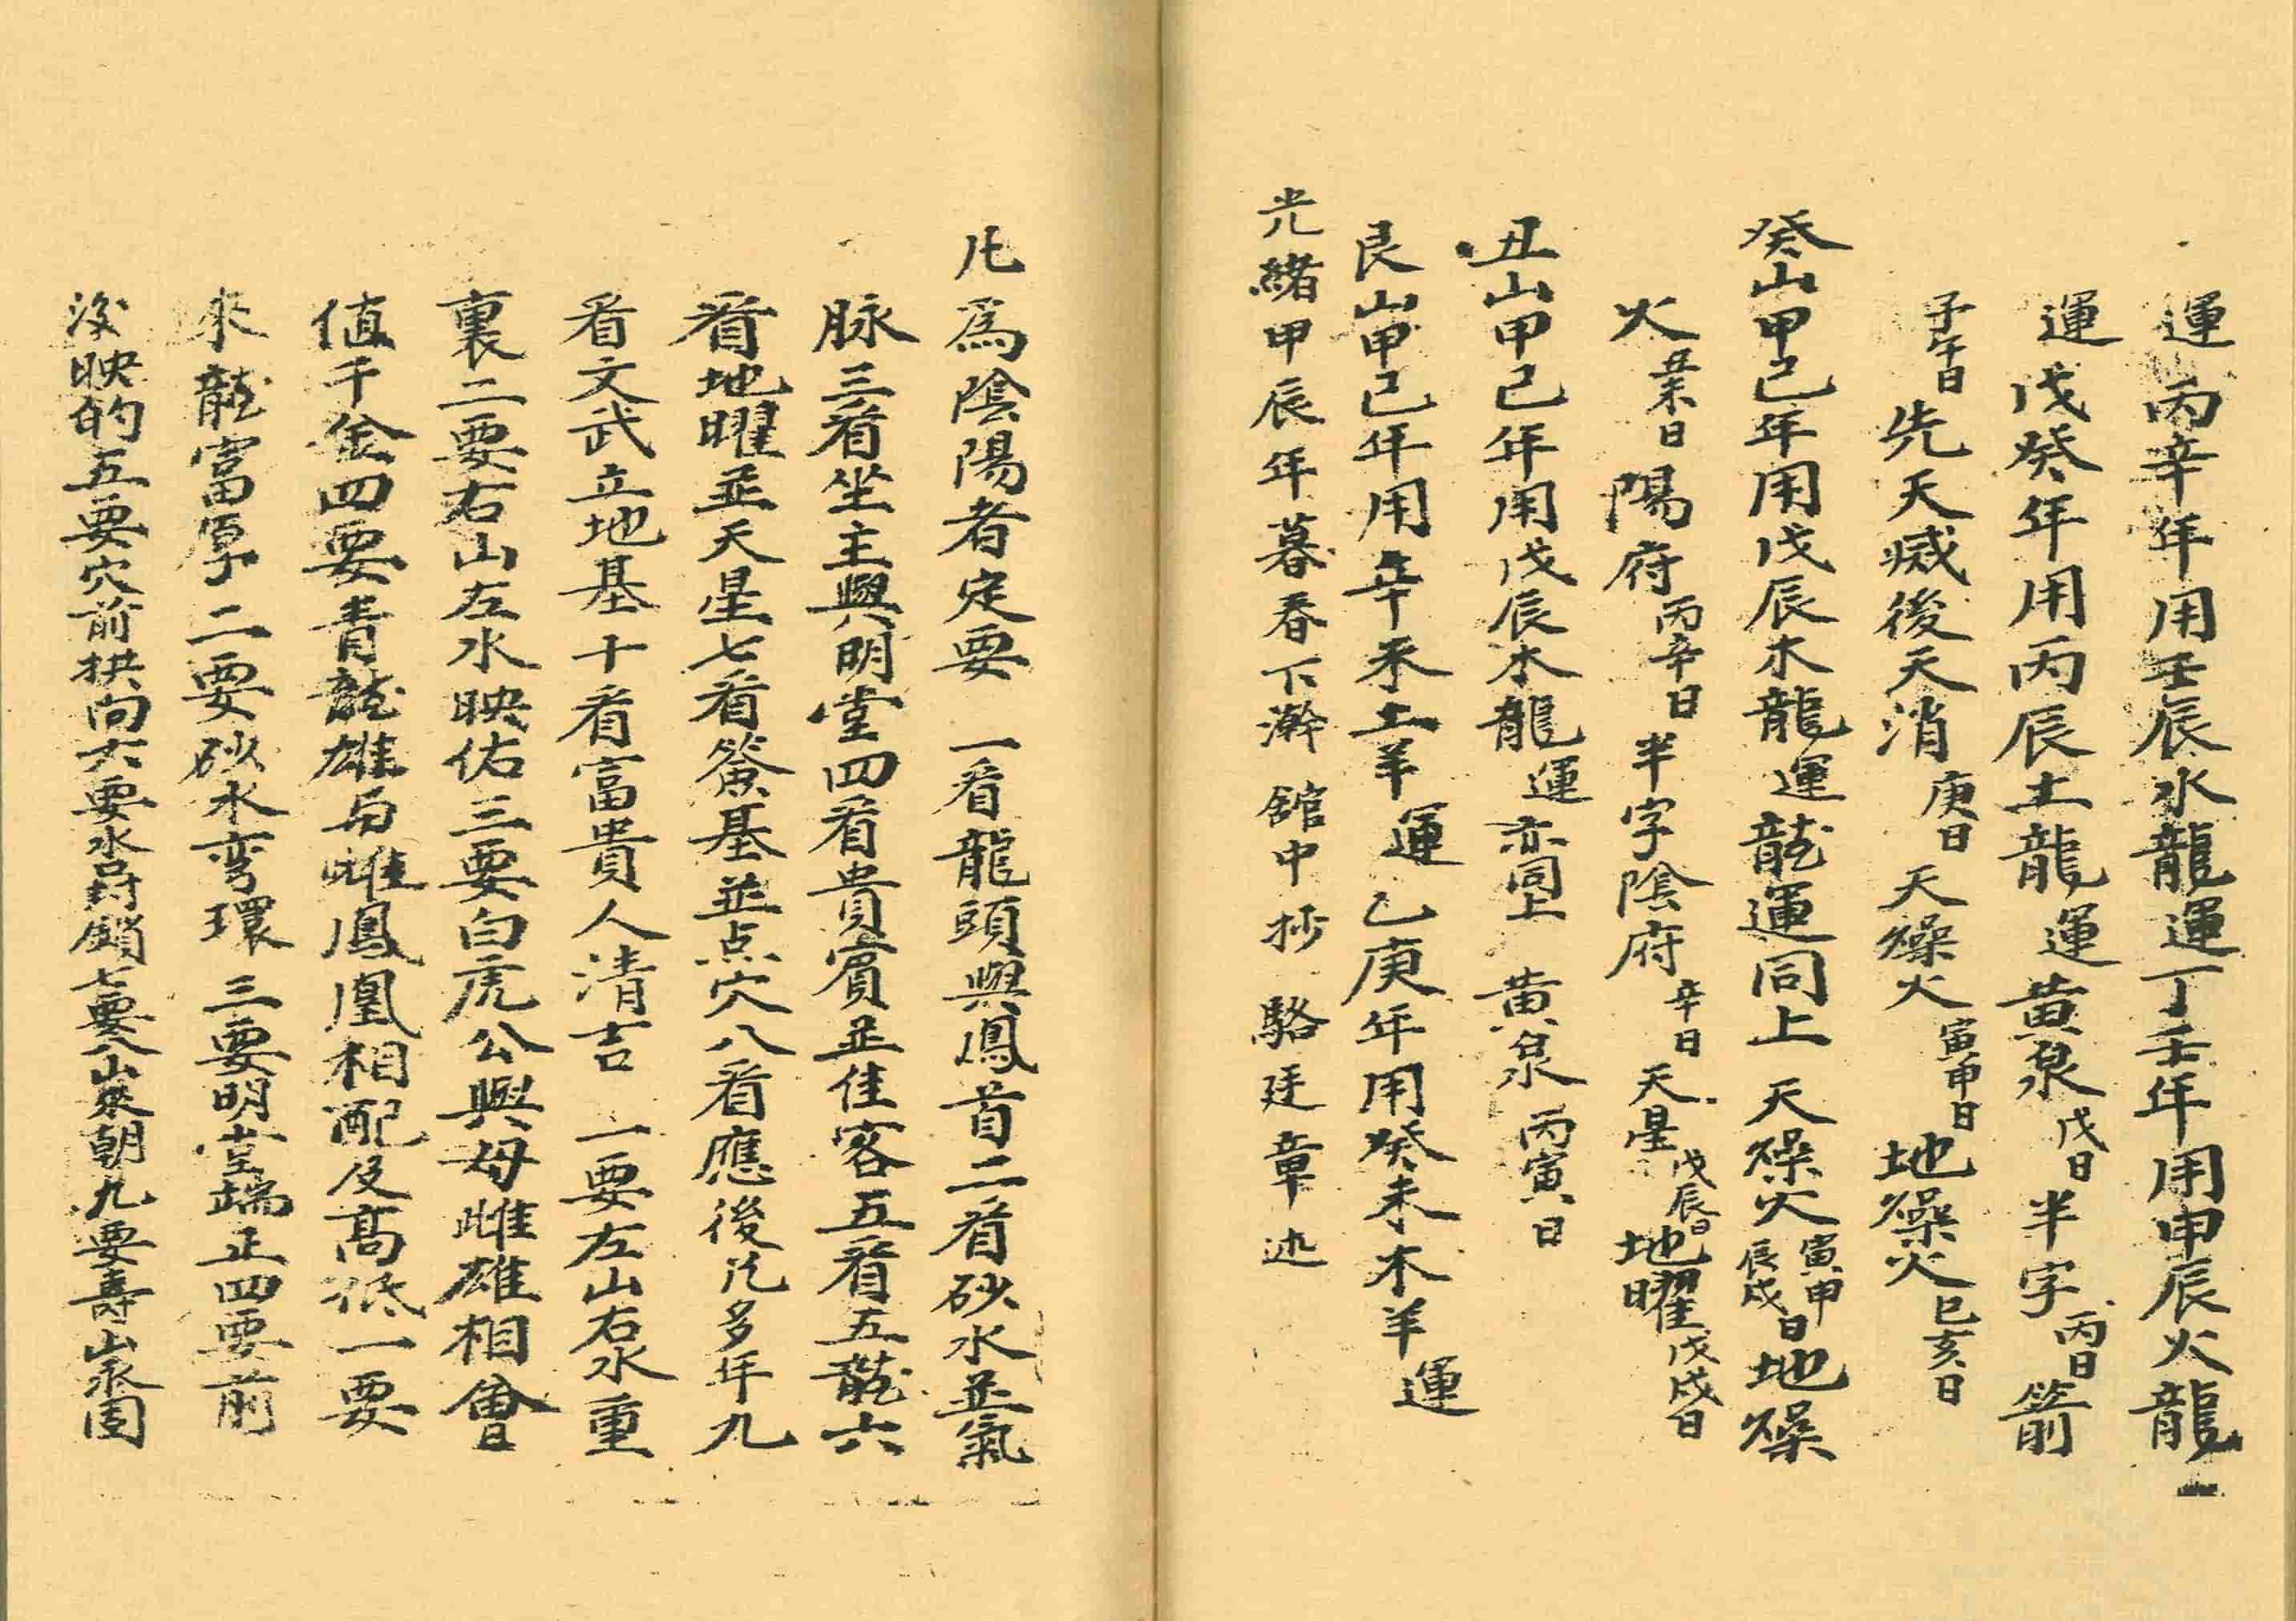 運丙辛年用壬辰水龍運丁壬年用甲辰火龍
運戊癸年用丙辰土龍運黄泉戊日半字丙日箭
子午日先天㓕後天消庚日天燥火寅申日地燥火巳亥日
癸山甲己年用戊辰木龍運龍運同上天燥火寅申辰戌日地燥
火丑未日陽府丙辛日半字陰府辛日天星戊辰日地曜戊戌日
丑山甲己年用戊辰木龍運亦同上黄泉丙寅日
艮山甲己年用辛未土羊運乙庚年用癸未木羊運
光緒甲辰年暮春下澣舘中抄駱廷章述
凡爲陰陽者定要一看龍頭與鳳首二看砂水並氣
脉三看坐主與明堂四看貴賔並佳客五看五龍六
看地曜並天星七看簽基並点穴八看應後凡多年九
看文武立地基十看富貴人清吉一要左山右水重
裏二要右山左水映佑三要白虎公與母雌雄相會
值千金四要青龍雄与雌鳳凰相配及高低一要
來龍當厚二要砂水弯環三要明堂端正四要前
後映的五要穴前拱向六要水口封鎖七要八山來朝九要壽山永固